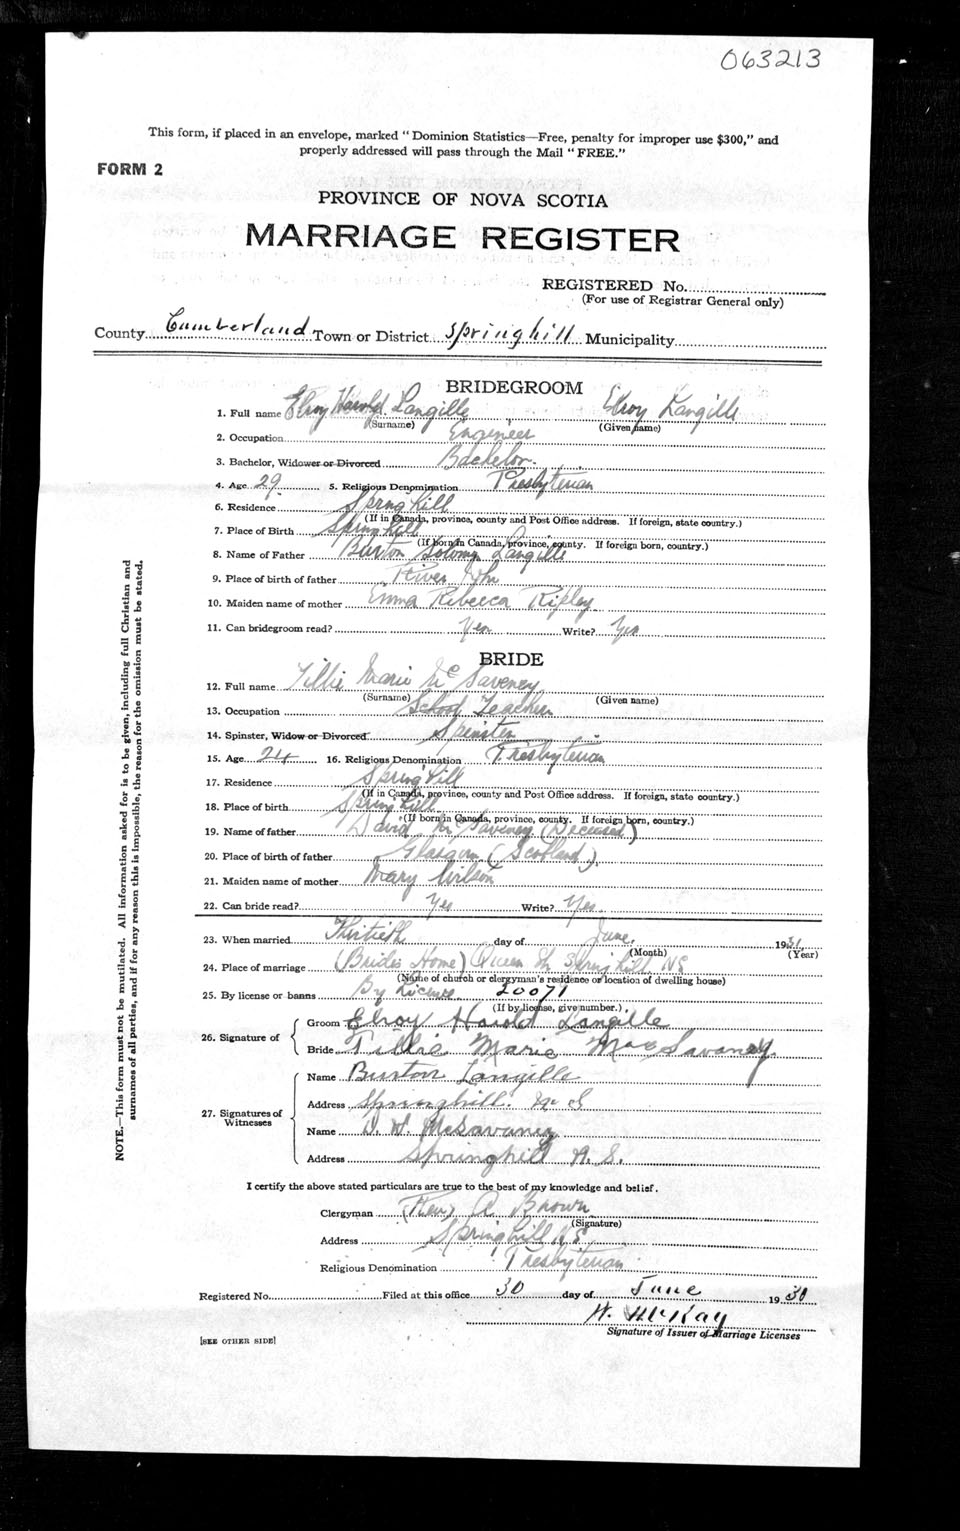 063213
This form, if placed in an envelope, marked "Dominion Statistics—Free, penalty for improper use $300," and
properly addressed will pass through the Mail "FREE."
FORM 2
PROVINCE OF NOVA SCOTIA
MARRIAGE REGISTER
REGISTERED No.
(For use of Registrar General only)
County Cumberland Town or District Springhill Municipality
BRIDEGROOM
1. Full name Elroy Harold Langille Elroy Langille
(Surname) (Given name)
2. Occupation Engineer
3. Bachelor, Widower or Divorced Bachelor.
4. Age 29 5. Religious Denomination Presbyterian
6. Residence Spring hill
(If in Canada, province, county and Post Office address. If foreign, state country.)
7. Place of Birth Spring hill
(If born in Canada, province, county. If foreign born, country.)
8. Name of Father Burton Langille
9. Place of birth of father River John
10. Maiden name of mother Emma Rebecca Ripley
11. Can bridegroom read? Yes Write? Yes
BRIDE
12. Full name Tillie Marie McSaveney
(Surname) (Given name)
13. Occupation School Teacher
14. Spinster, Widow or Divorced Spinster
15. Age 24 16. Religious Denomination Presbyterian
17. Residence Spring hill
(If in Canada, province, county and Post Office address. If foreign, state country.)
18. Place of birth Spring hill
(If born in Canada, province, county. If foreign born, country.)
19. Name of father David McSaveney (Deceased)
20. Place of birth of father Glasgow (Scotland)
21. Maiden name of mother Mary Wilson
22. Can bride read? Yes Write? Yes.
23. When married Thirtieth day of June. 19
(Month) (Year)
24. Place of marriage (Brides Home) Queen St Springhill NS
(Name of church or clergyman's residence or location of dwelling house)
25. By license or banns By License 20071
(If by license, give number.)
26. Signature of
Groom Elroy Harold Langille
Bride Tillie Marie MacSavaney
27. Signatures of Witnesses
Name Burton Langille
Address Springhill. N S
Name McSavaney
Address Springhill N. S.
I certify the above stated particulars are true to the best of my knowledge and belief.
Clergyman (Rev) A Brown
(Signature)
Address Springhill N.S.
Religious Denomination Presbyterian
Registered No. Filed at this office 30 day of June 19
W. McKay
Signature of Issuer of Marriage Licenses
[SEE OTHER SIDE]
NOTE.—This form must not be mutilated. All information asked for is to be given, including full Christian and
surnames of all parties, and if for any reason this is impossible, the reason for the omission must be stated.